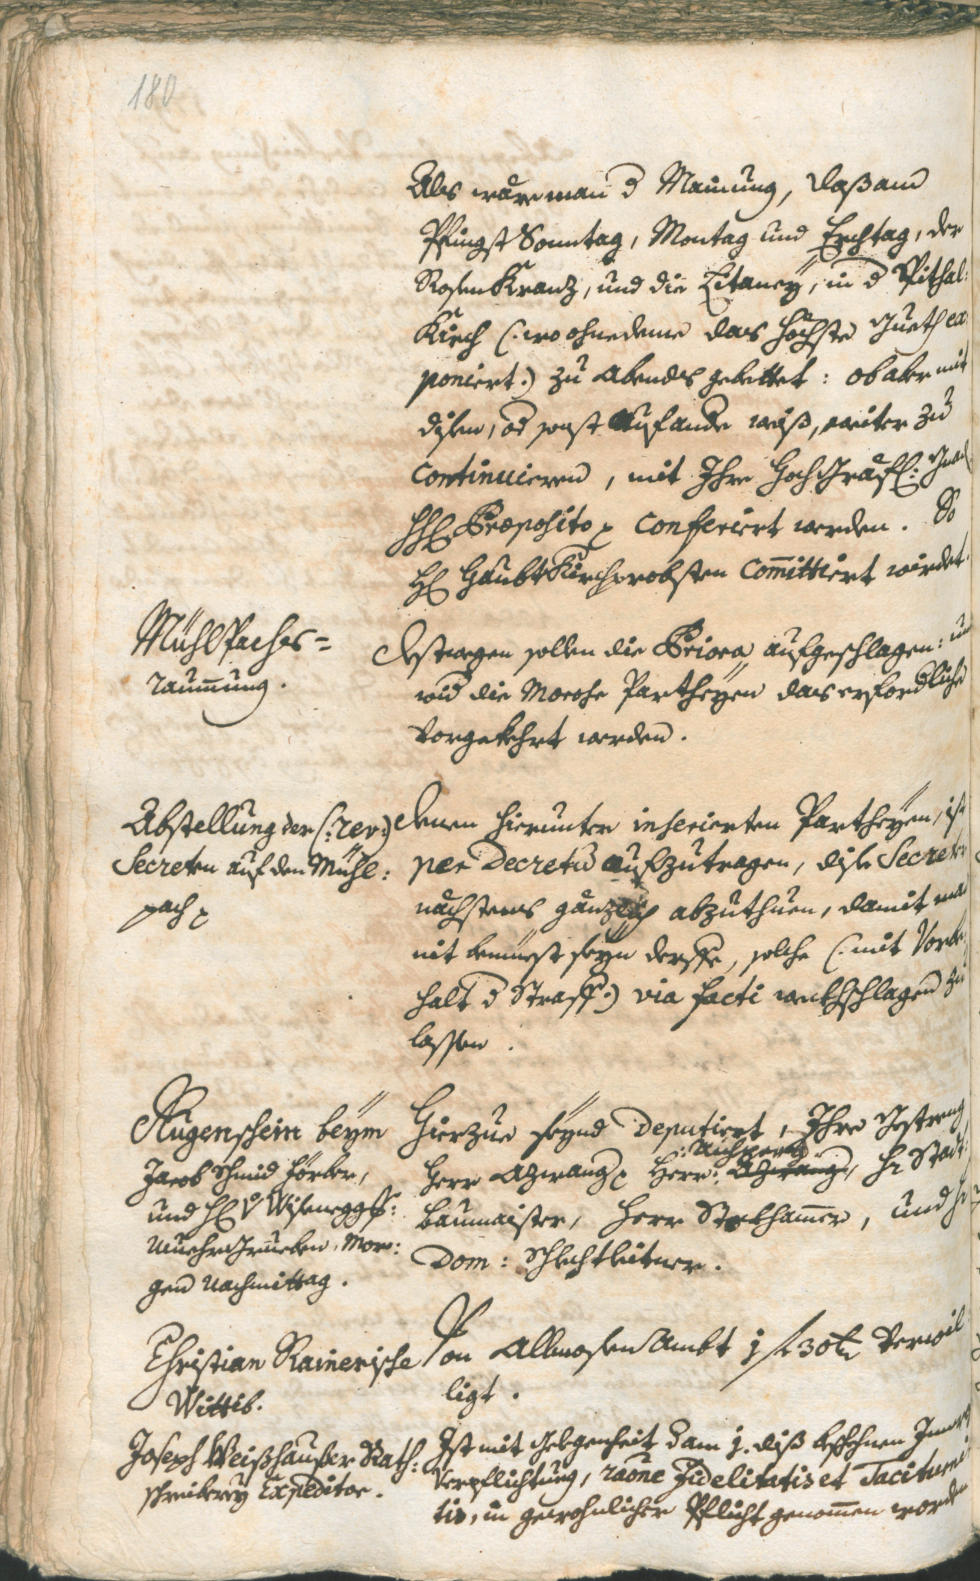 180
Als wäre man d Mainung, daß am
Pfingst Sonntag, Montag und Erchtag, der
Rosen Kranz, und die Litaney, in d Spithal:
Kirch (: wo ohnedeme das höchste Gueth ex
poniert :) zu Abends gebettet: ob aber mit
disen, od sonst auf ande weiß, weiter zu
continuieren, mit Ihre Hochgräfl: Gnad
H Præposito conferiert werden. So
H Haubt Kirchprobsten Committiert wirdet.
Mühlpaches=
raumung.
Destwegen sollen die Priora aufgeschlagen: und
wid die Morose Partheyen das erfordliche
vorgekehrt werden.
Abstellung der (: rev:)
Secreten auf den Mühl:
pach
Denen hierunter inserierten Partheyen, ist
per Decretu aufzutragen, dise Secreten
nächstens gänzlich abzuthuen, damit man
nit bemüest seyn derffe, solche (: mit Vorbe
halt d Straff :) via facti wekhschlagen zu
lassen.
Augenschein beym
Jacob Schmid Förber,
und H v Wiseneggs:
Mor:
gen Nachmittag.
Hierzue seynd Deputiert, Ihre Gestreng
Herr Herr: H Stadt
Baumaister, Herr Stokhamer, und H
Dom: Schlechtleitner.
Christian Rainerische
Wittib.
Von Allmosen Ambt 1 f 30 x verwil
ligt.
Joseph Weißhauser Rath:
schreiberey Expeditor.
Ist mit Gelegenheit dam 1. diß beschehnen
Verpflichtung, raone Fidelitatis et Taciturni
tis, in gewohnlicher Pflicht genomen worden